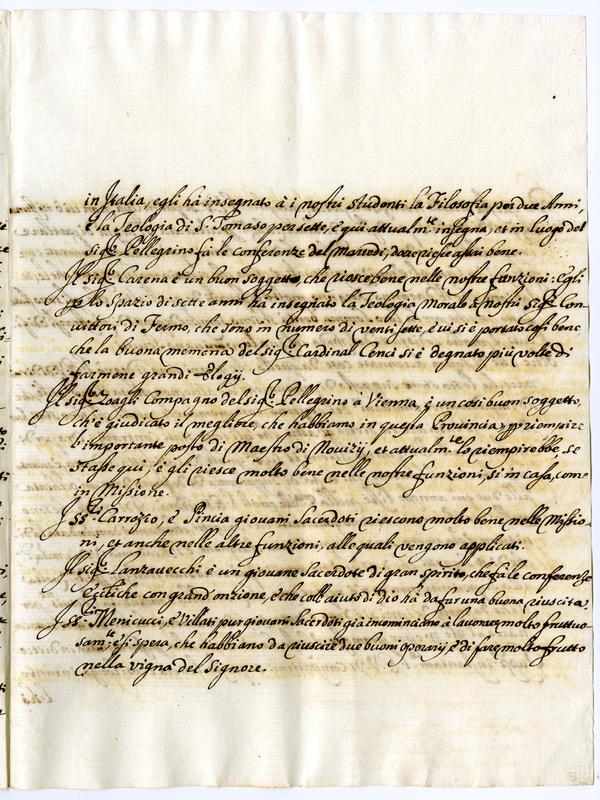 in Italia, egli hà insegnato à i nostri studenti la Filosofia per due Anni,
e la Teologia di S. Tomaso per sette, e quì attualm.te insegna, et in luogo del
sig.r Pellegrino fà le conferenze del Martedì, dove riesce assai bene.
Il sig.r Carena è un buon soggetto, che riesce bene nelle nostre funzioni: Egli
p lo spazio di sette anni hà insegnato la Teologia Morale à nostri sig.ri Con-
vittori di Fermo, che sono in numero di venti sette, e vi si è portato così bene
che la buona memoria del sig.r Cardinal Cenci si è degnato più volte di
farmene grandi Elogij.
Il sig.r Zagli Compagno del sig.r Pellegrino à Vienna, è un così buon soggetto,
ch'è giudicato il megliore, che habbiamo in questa Provincia p riempire
l'importante posto di Maestro di Novizij, et attualm.te lo riempirebbe, se
stasse quì, e gli riesce molto bene nelle nostre funzioni, sì in casa, come
in Missione.
I SS.ri Carrozio, e Pincia giovani Sacerdoti riescono molto bene nelle Missio-
ni, et anche nelle altre funzioni, alle quali vengono applicati.
Il sig.r Lanzavecchi è un giovane Sacerdote di gran spirito, che fà le conferenze
con grand'onzione, e che coll'aiuto di Dio hà da far una buona riuscita.
I SS.ri Menicucci, e Villati pur giovani Sacerdoti già incominciano à lavorar molto fruttuo-
sam.te, e si spera, che habbiano da riuscire due buoni operarij, e di fare molto frutto
nella vigna del Signore.